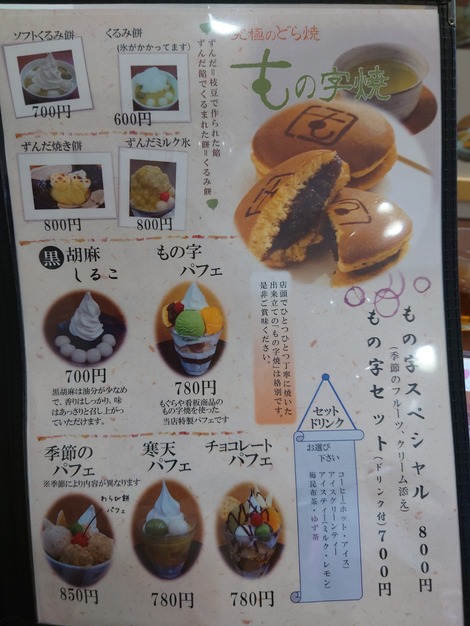 ソフトくるみ餅
700円
くるみ餅
(氷がかかってます)
600円
ずんだ=枝豆で作られた餡
ずんだ餡でくるまれた餅=くるみ餅
ずんだ焼き餅
800円
ずんだミルク氷
800円
究極のどら焼
もの字焼
店頭でひとつひとつ丁寧に焼いた
出来立ての「もの字焼」は格別です。
是非ご賞味ください。
黒胡麻
しるこ
700円
黒胡麻は油分が少なめ
で、香りはしっかり、味
はあっさりと召し上がっ
ていただけます。
もの字
パフェ
780円
もぐらや看板商品の
もの字焼を使った
当店特製パフェです
季節の
パフェ
※季節により内容が異なります
わらび餅
パフェ
850円
寒天
パフェ
780円
チョコレート
パフェ
780円
もの字スペシャル
(季節のフルーツ、クリーム添え)
800円
もの字セット(ドリンク付)700円
セット
ドリンク
お選び
下さい
コーヒー(ホット・アイス)
アイスグリーンティー
アイスティー(ミルク・レモン)
梅昆布茶・ゆず茶